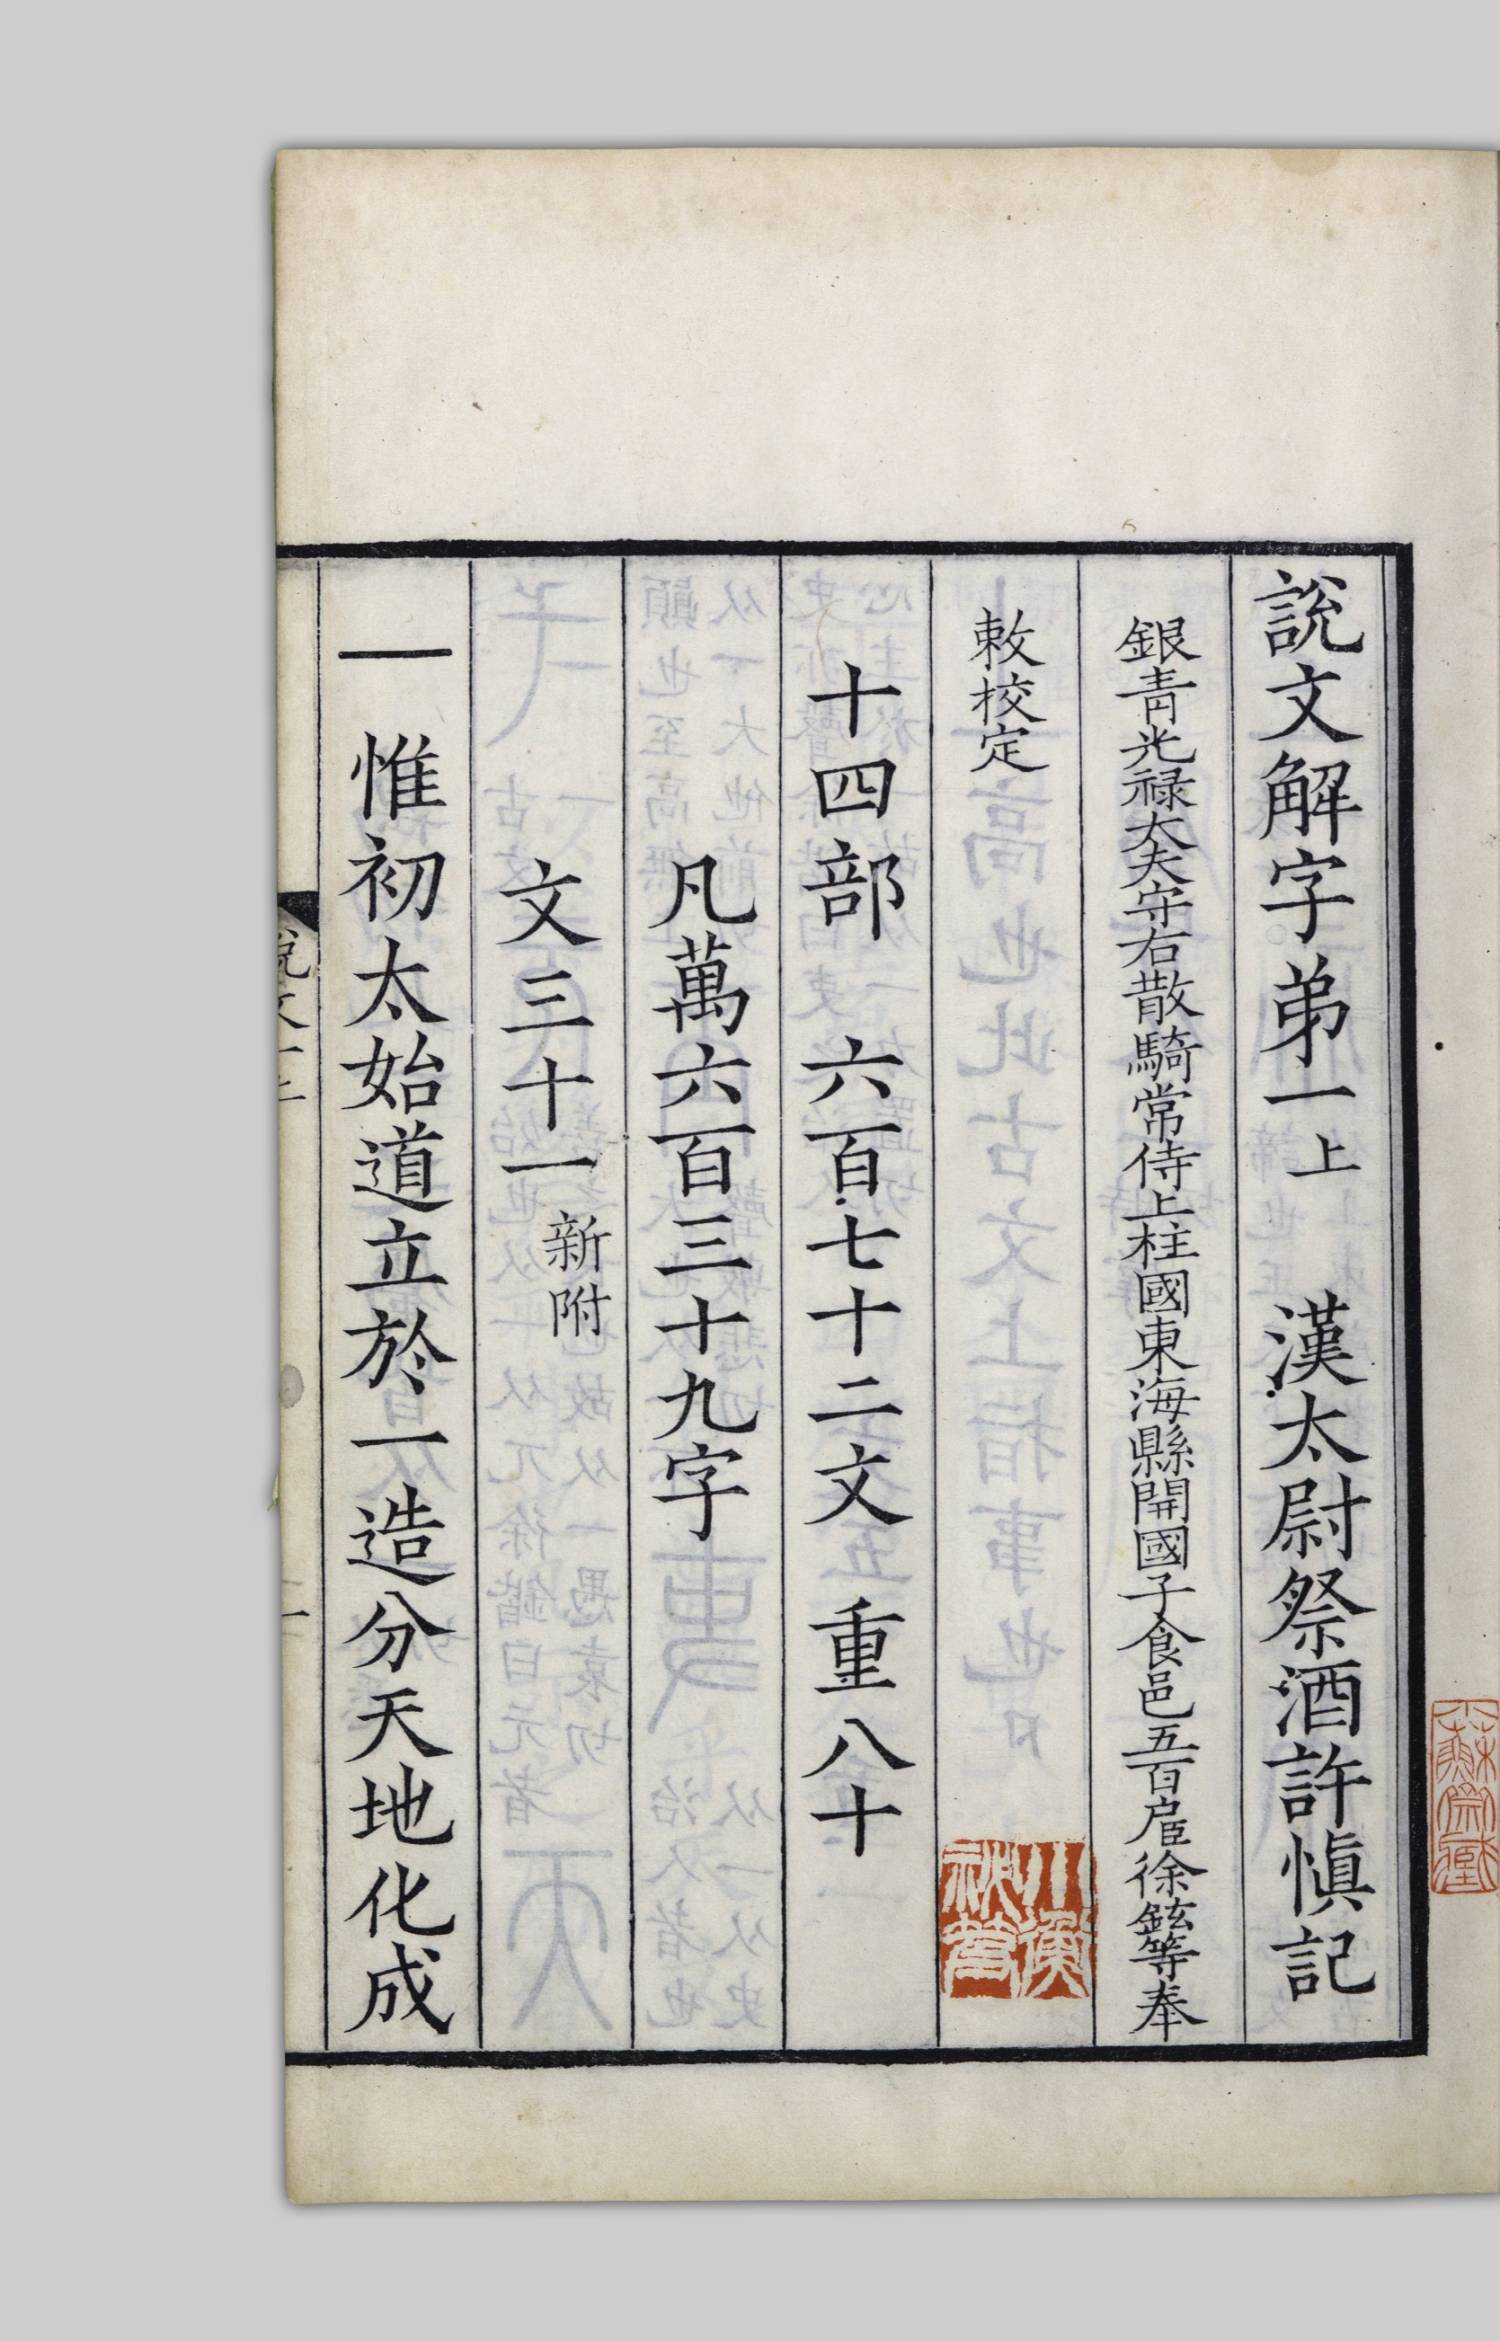 說文解字弟一上 漢太尉祭酒許慎記
銀青光祿大夫守右散騎常侍上柱國東海縣開國子食邑五百戶臣徐鉉等奉
敕校定
十四部 六百七十二文 重八十
凡萬六百三十九字
文三十一新附
一 惟初太始道立於一造分天地化成
說文一上